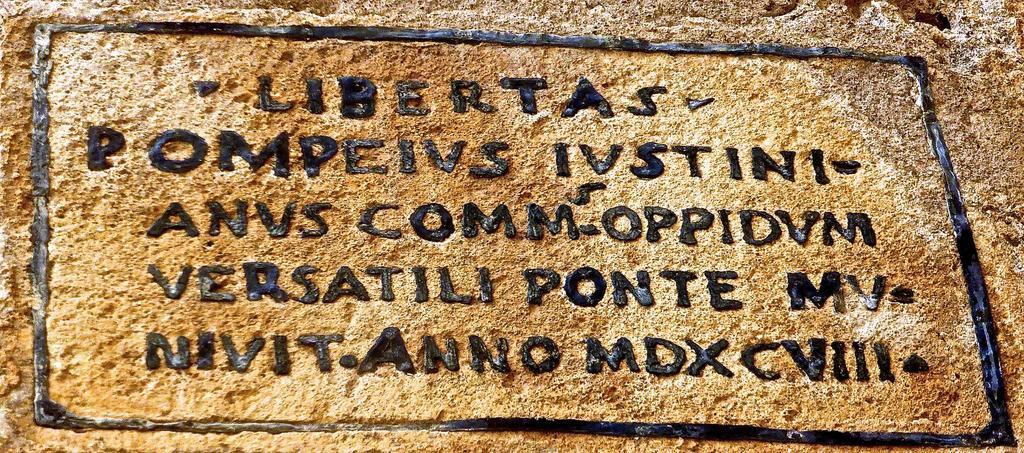 · LIBERTAS ·
POMPEIVS IVSTINI-
ANVS COMM.S OPPIDVM
VERSATILI PONTE MV-
NIVIT. ANNO MDXCVIII.